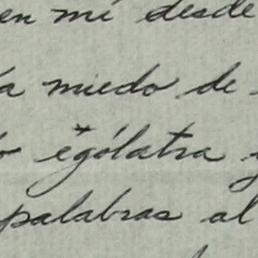 en mí desde
a miedo de
o ególatra y
palabras al